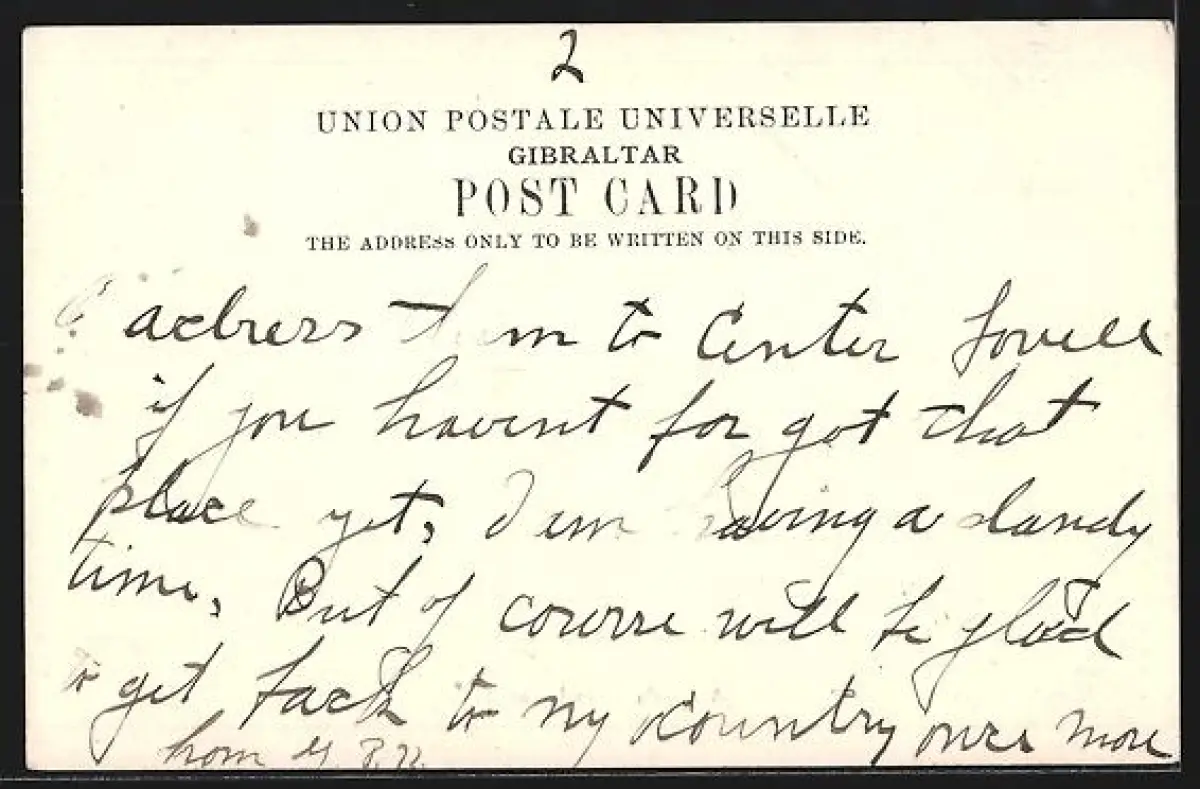 2
UNION POSTALE UNIVERSELLE
GIBRALTAR
POST CARD
THE ADDRESS ONLY TO BE WRITTEN ON THIS SIDE.
address them to Center Lovell
if you havent for got that
place yet, I em having a dandy
time, But of course will be glad
to get back to my country once more
from